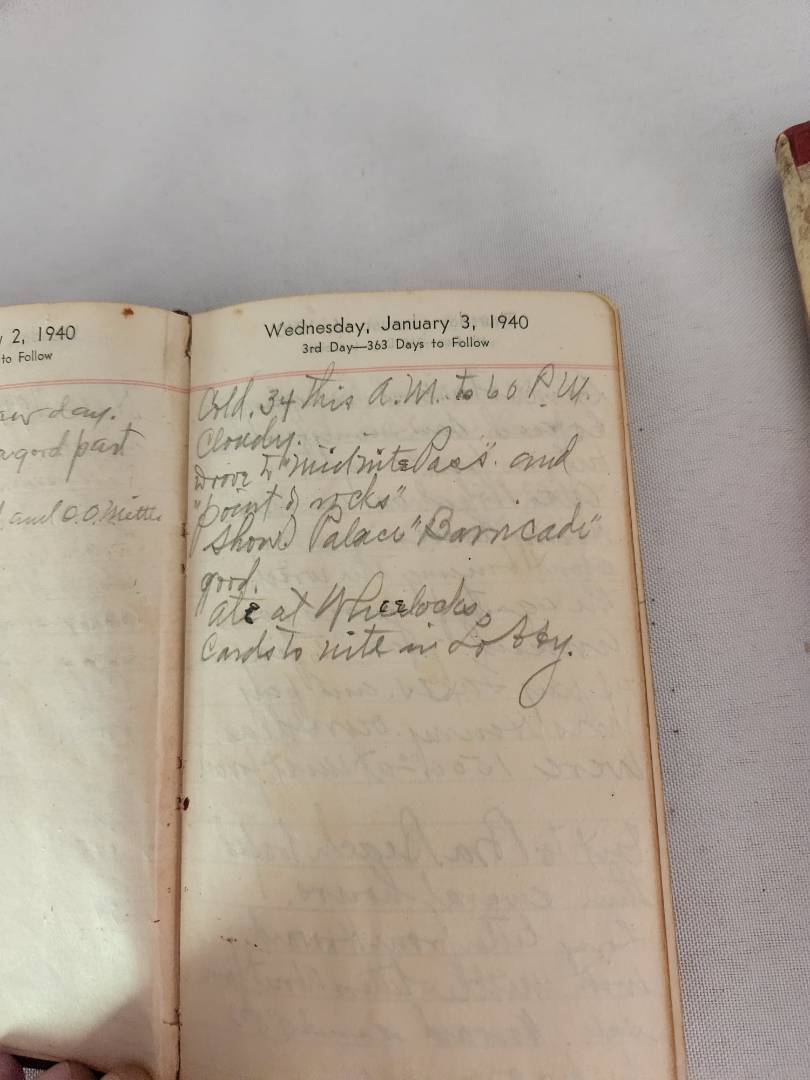 2, 1940
to Follow
day.
a good part
and O.O. Mettle
Wednesday, January 3, 1940
3rd Day—363 Days to Follow
Cold. 34 this A.M. to 60 P.M.
Cloudy.
Drove to "Midnite Pass" and
"point o rocks"
Show Palace "Barricade"
good.
ate at Wheelocks.
Cards to nite in Lobby.